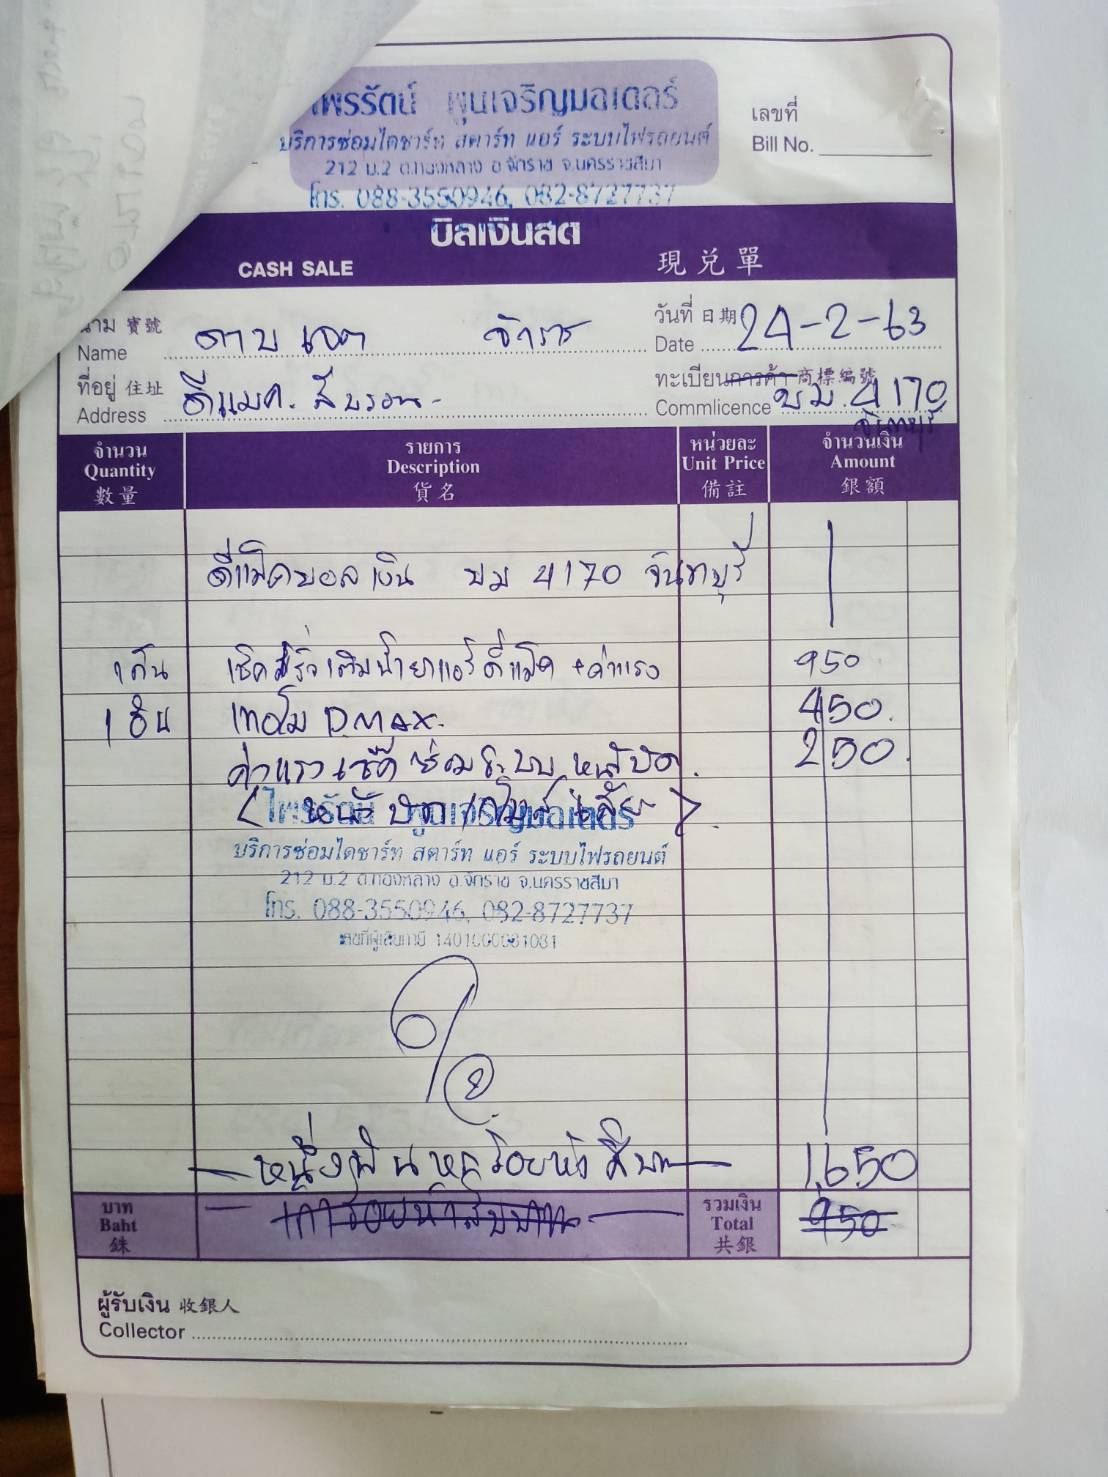 ไพรรัตน์ พูนเจริญมอเตอร์
บริการซ่อมไดชาร์ท สตาร์ท แอร์ ระบบไฟรถยนต์
212 ม.2 ต.ทองหลาง อ.จักราช จ.นครราชสีมา
โทร. 088-3550946, 082-8727737
เลขที่
Bill No.
บิลเงินสด
CASH SALE 現兑單
นาม 寶號
Name ดาบ เจต จักราช
วันที่ 日期
Date 24-2-63
ที่อยู่ 住址
Address ดีแมค.
ทะเบียนการค้า 商標編號
Commlicence บม. 4170
จันทบุรี
จำนวน รายการ หน่วยละ จำนวนเงิน
Quantity Description Unit Price Amount
數量 貨名 備註 銀額
ดีแม็คบอลเงิน บม 4170 จันทบุรี
1 คัน เช็ครั่วเติมน้ำยาแอร์ดีแม็ค + ค่าแรง 950
1 อัน เทอโม D.MAX. 450.
ค่าแรงเช็คซ่อมระบบหน้าปัด. 250.
ไพรรัตน์ พูนเจริญมอเตอร์
บริการซ่อมไดชาร์ท สตาร์ท แอร์ ระบบไฟรถยนต์
212 ม.2 ต.ทองหลาง อ.จักราช จ.นครราชสีมา
โทร. 088-3550946, 082-8727737
เลขที่ผู้เสียภาษี
หนึ่งพันหกร้อยห้าสิบบาท 1,650
บาท
Baht
銖
เก้าร้อยห้าสิบบาท
รวมเงิน
Total
共銀
950
ผู้รับเงิน 收銀人
Collector